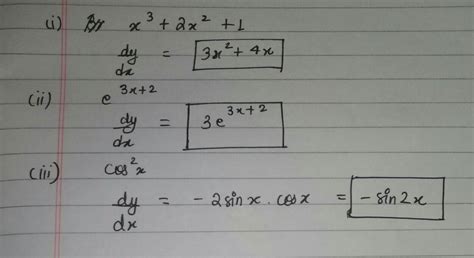 (i) x³ + 2x² + 1
dy/dx = 3x² + 4x
(ii) e^(3x+2)
dy/dx = 3e^(3x+2)
(iii) cos²x
dy/dx = - 2sinx . cosx = - sin2x